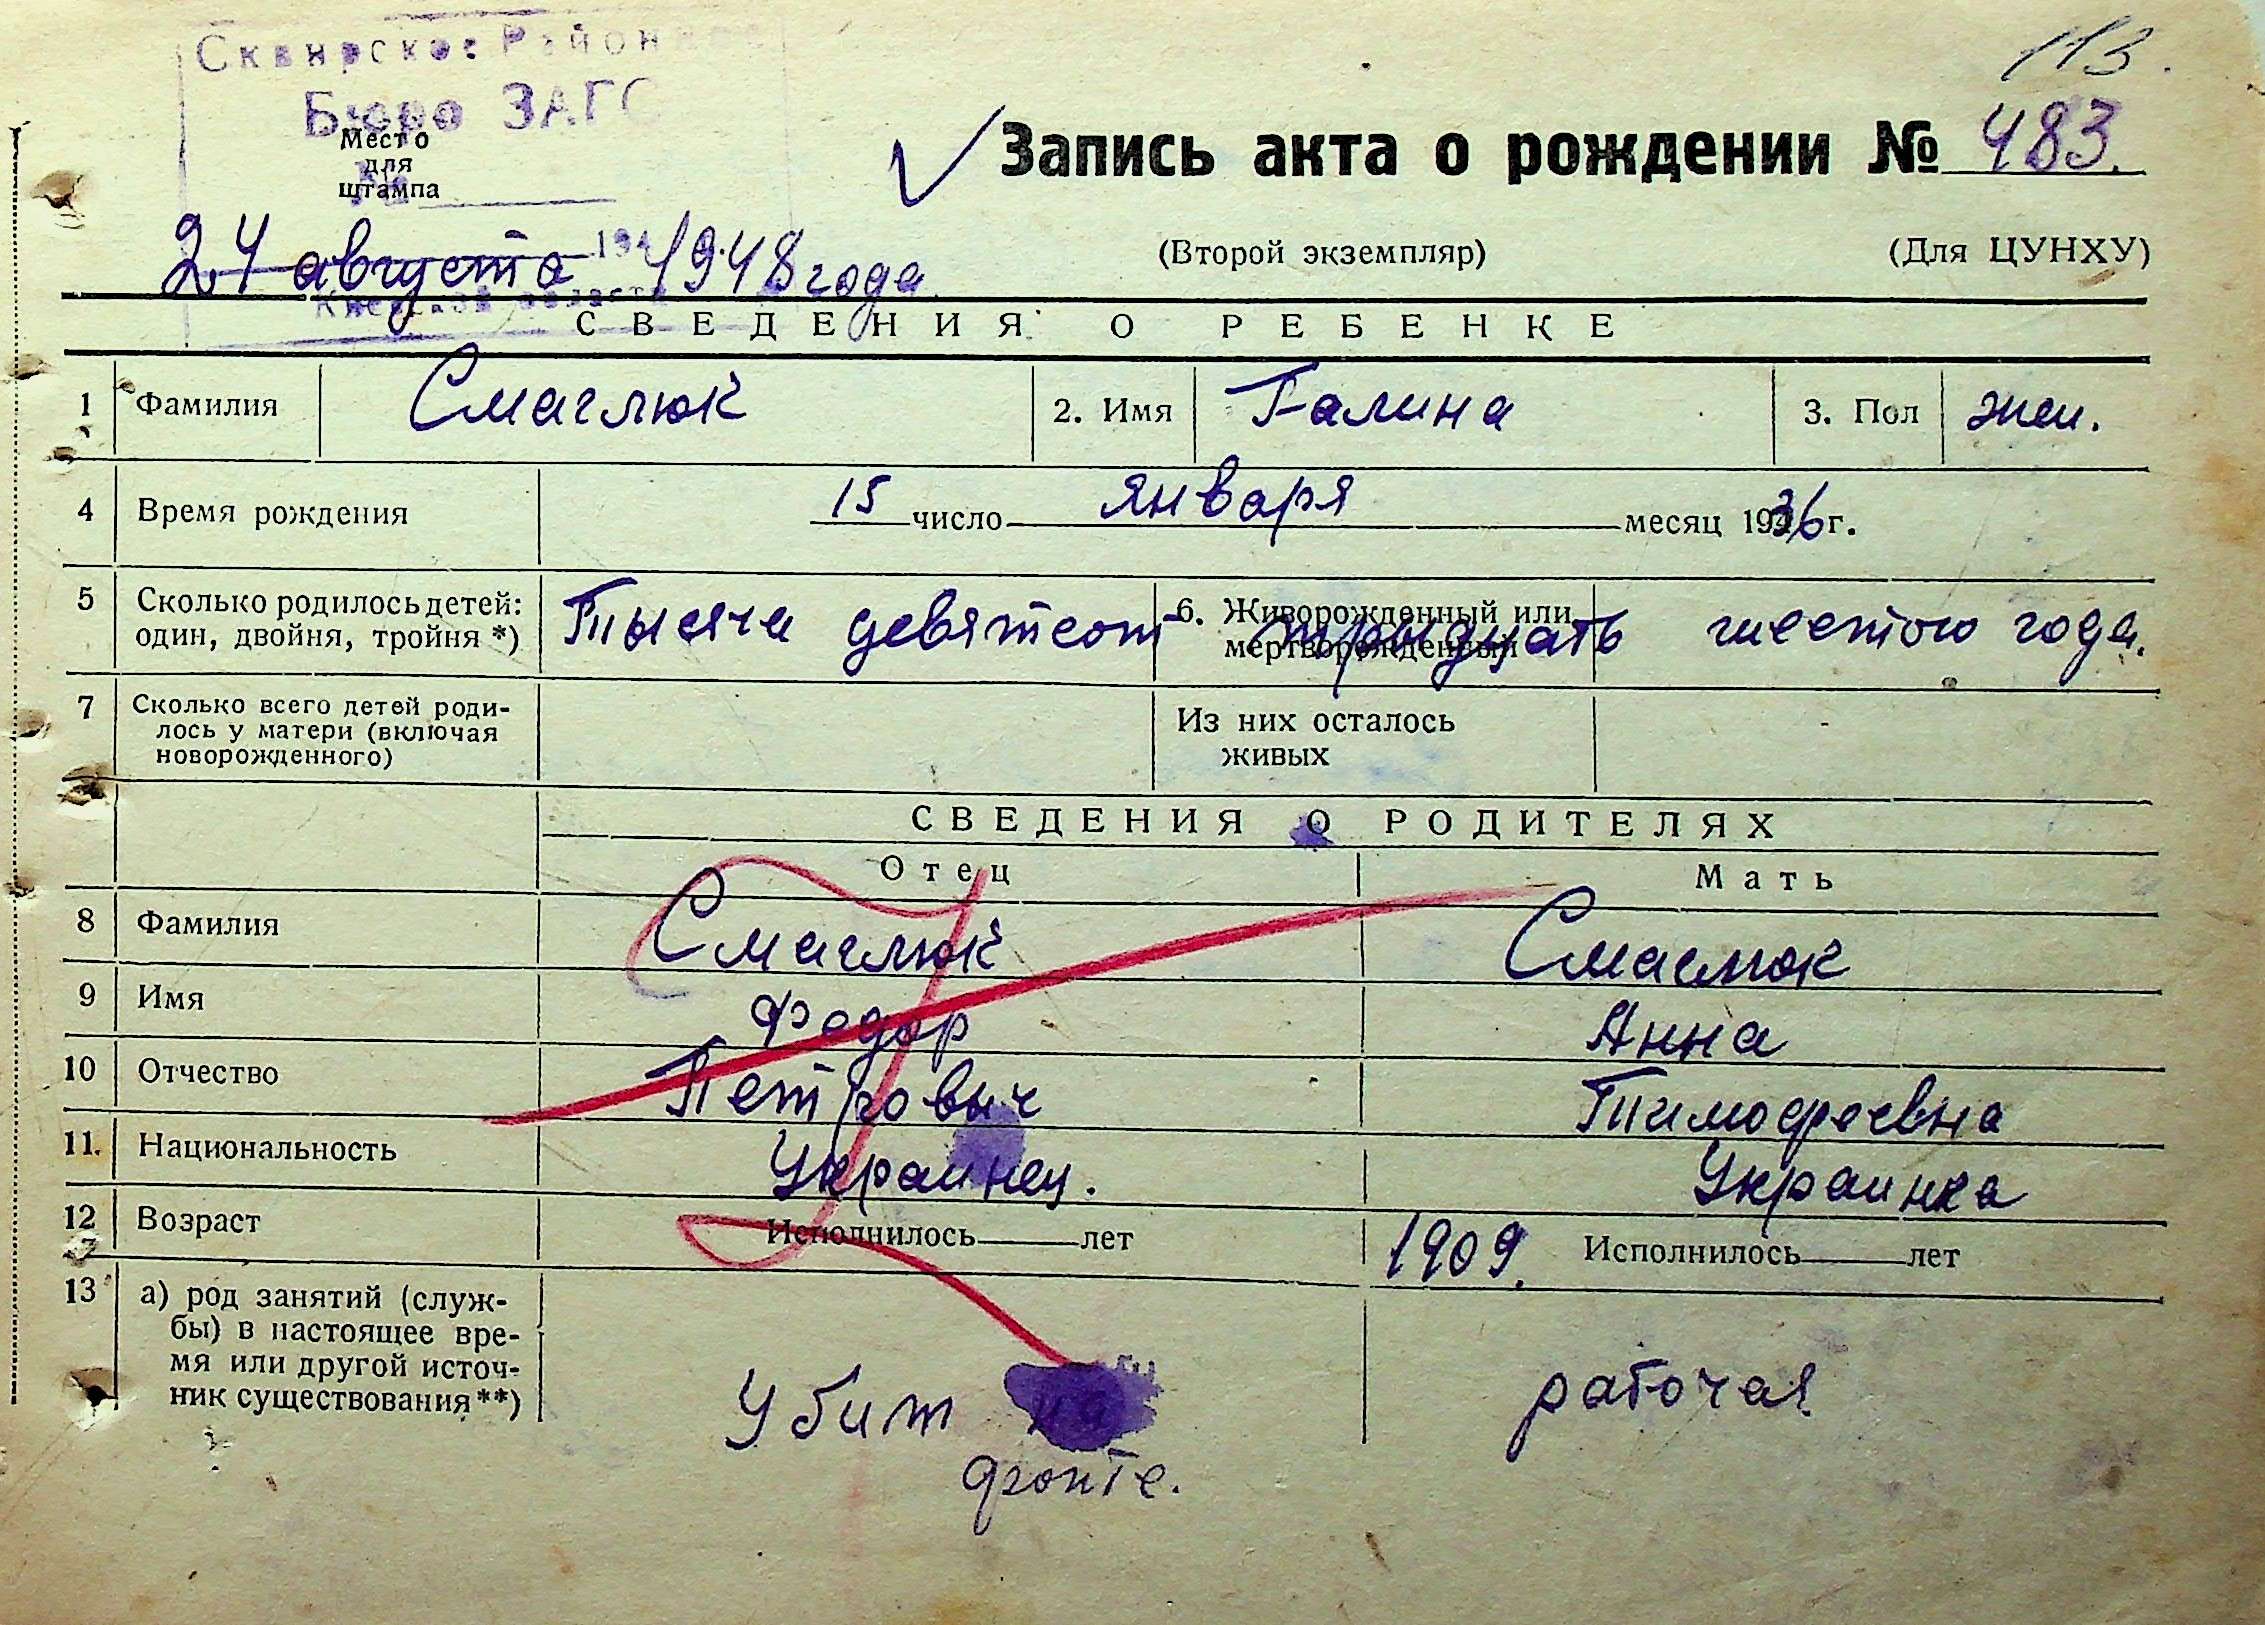 113.
Сквирское Районное
Бюро ЗАГС
Место
для
штампа
№
Запись акта о рождении № 483.
24 августа 194 1948 года
(Второй экземпляр) (Для ЦУНХУ)
Киевской области
СВЕДЕНИЯ О РЕБЕНКЕ
1 Фамилия Смаглюк 2. Имя Галина 3. Пол жен.
4 Время рождения 15 число января месяц 1936 г.
5 Сколько родилось детей: Тысяча девятсот 6. Живорожденный или трыдцать шестого года.
один, двойня, тройня *) мертворожденный
7 Сколько всего детей роди- Из них осталось
лось у матери (включая живых
новорожденного)
СВЕДЕНИЯ О РОДИТЕЛЯХ
Отец Мать
8 Фамилия Смаглюк Смаглюк
9 Имя Федор Анна
10 Отчество Петровыч Тимофеевна
11. Национальность Украинец. Украинка
12 Возраст Исполнилось лет 1909. Исполнилось лет
13 а) род занятий (служ-
бы) в настоящее вре-
мя или другой источ-
ник существования **)
Убит на рабочая
фронте.